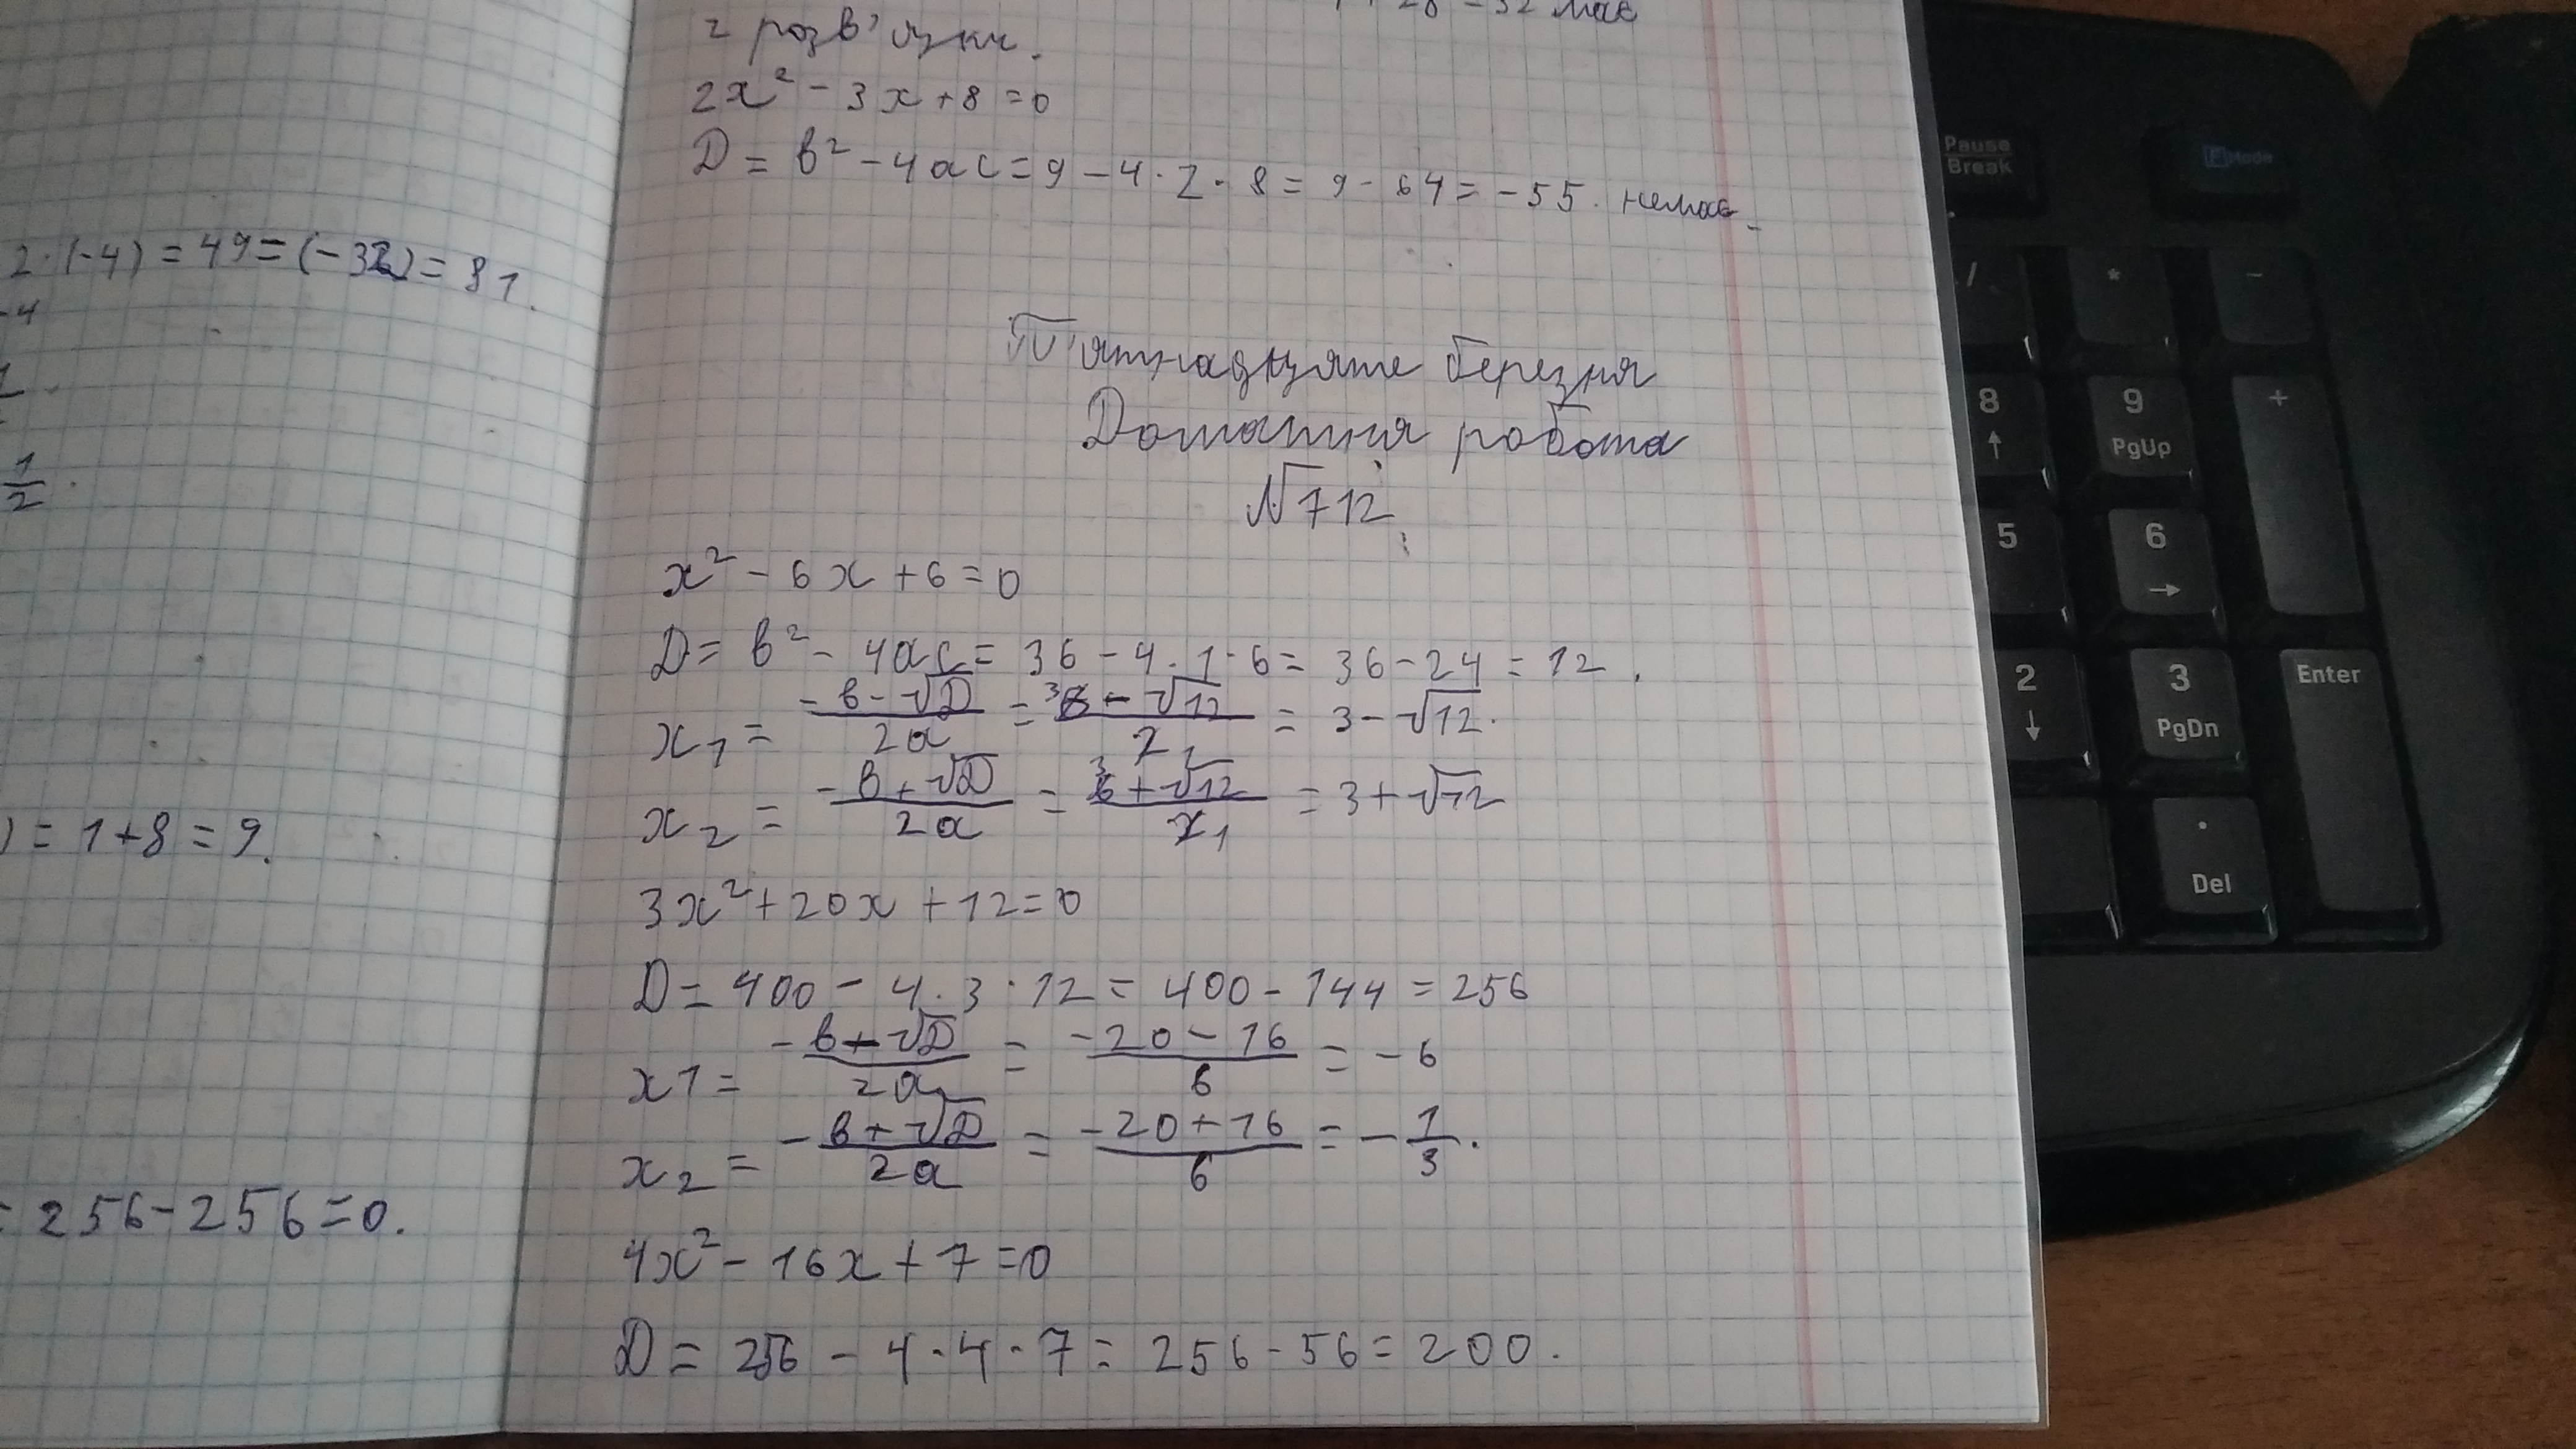 2·(-4) = 49 = (-32) = 81.
-4
1/2.
) = 1+8 = 9.
= 256-256=0.
2 розв'язки.
2x² - 3x+8=0
D = b² - 4ac = 9 - 4·2·8 = 9 - 64 = -55. немає.
П'ятнадцяте березня
Домашня робота
№712
x² - 6x + 6 = 0
D = b² - 4ac = 36 - 4·1·6 = 36 - 24 = 12.
x₁ = (-b - √D)/2a = (6 - √12)/2 = 3 - √12.
x₂ = (-b + √D)/2a = (6 + √12)/2 = 3 + √12
3x² + 20x + 12 = 0
D = 400 - 4·3·12 = 400 - 144 = 256
x1 = (-b - √D)/2a = (-20 - 16)/6 = -6
x₂ = (-b + √D)/2a = (-20 + 16)/6 = -1/3.
4x² - 16x + 7 = 0
D = 256 - 4·4·7 = 256 - 56 = 200.
Pause
Break
F Mode
/ * -
8 9 PgUp +
5 6
2 3 PgDn Enter
. Del